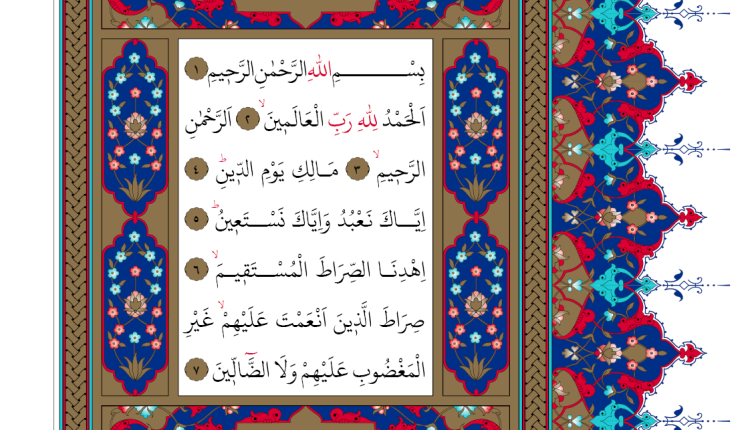 بِسْمِ اللّٰهِ الرَّحْمٰنِ الرَّح۪يمِ ١
اَلْحَمْدُ لِلّٰهِ رَبِّ الْعَالَم۪ينَۙ ٢ اَلرَّحْمٰنِ
الرَّح۪يمِۙ ٣ مَالِكِ يَوْمِ الدّ۪ينِۜ ٤
اِيَّاكَ نَعْبُدُ وَاِيَّاكَ نَسْتَع۪ينُۜ ٥
اِهْدِنَا الصِّرَاطَ الْمُسْتَق۪يمَۙ ٦
صِرَاطَ الَّذ۪ينَ اَنْعَمْتَ عَلَيْهِمْۙ غَيْرِ
الْمَغْضُوبِ عَلَيْهِمْ وَلَا الضَّٓالّ۪ينَ ٧